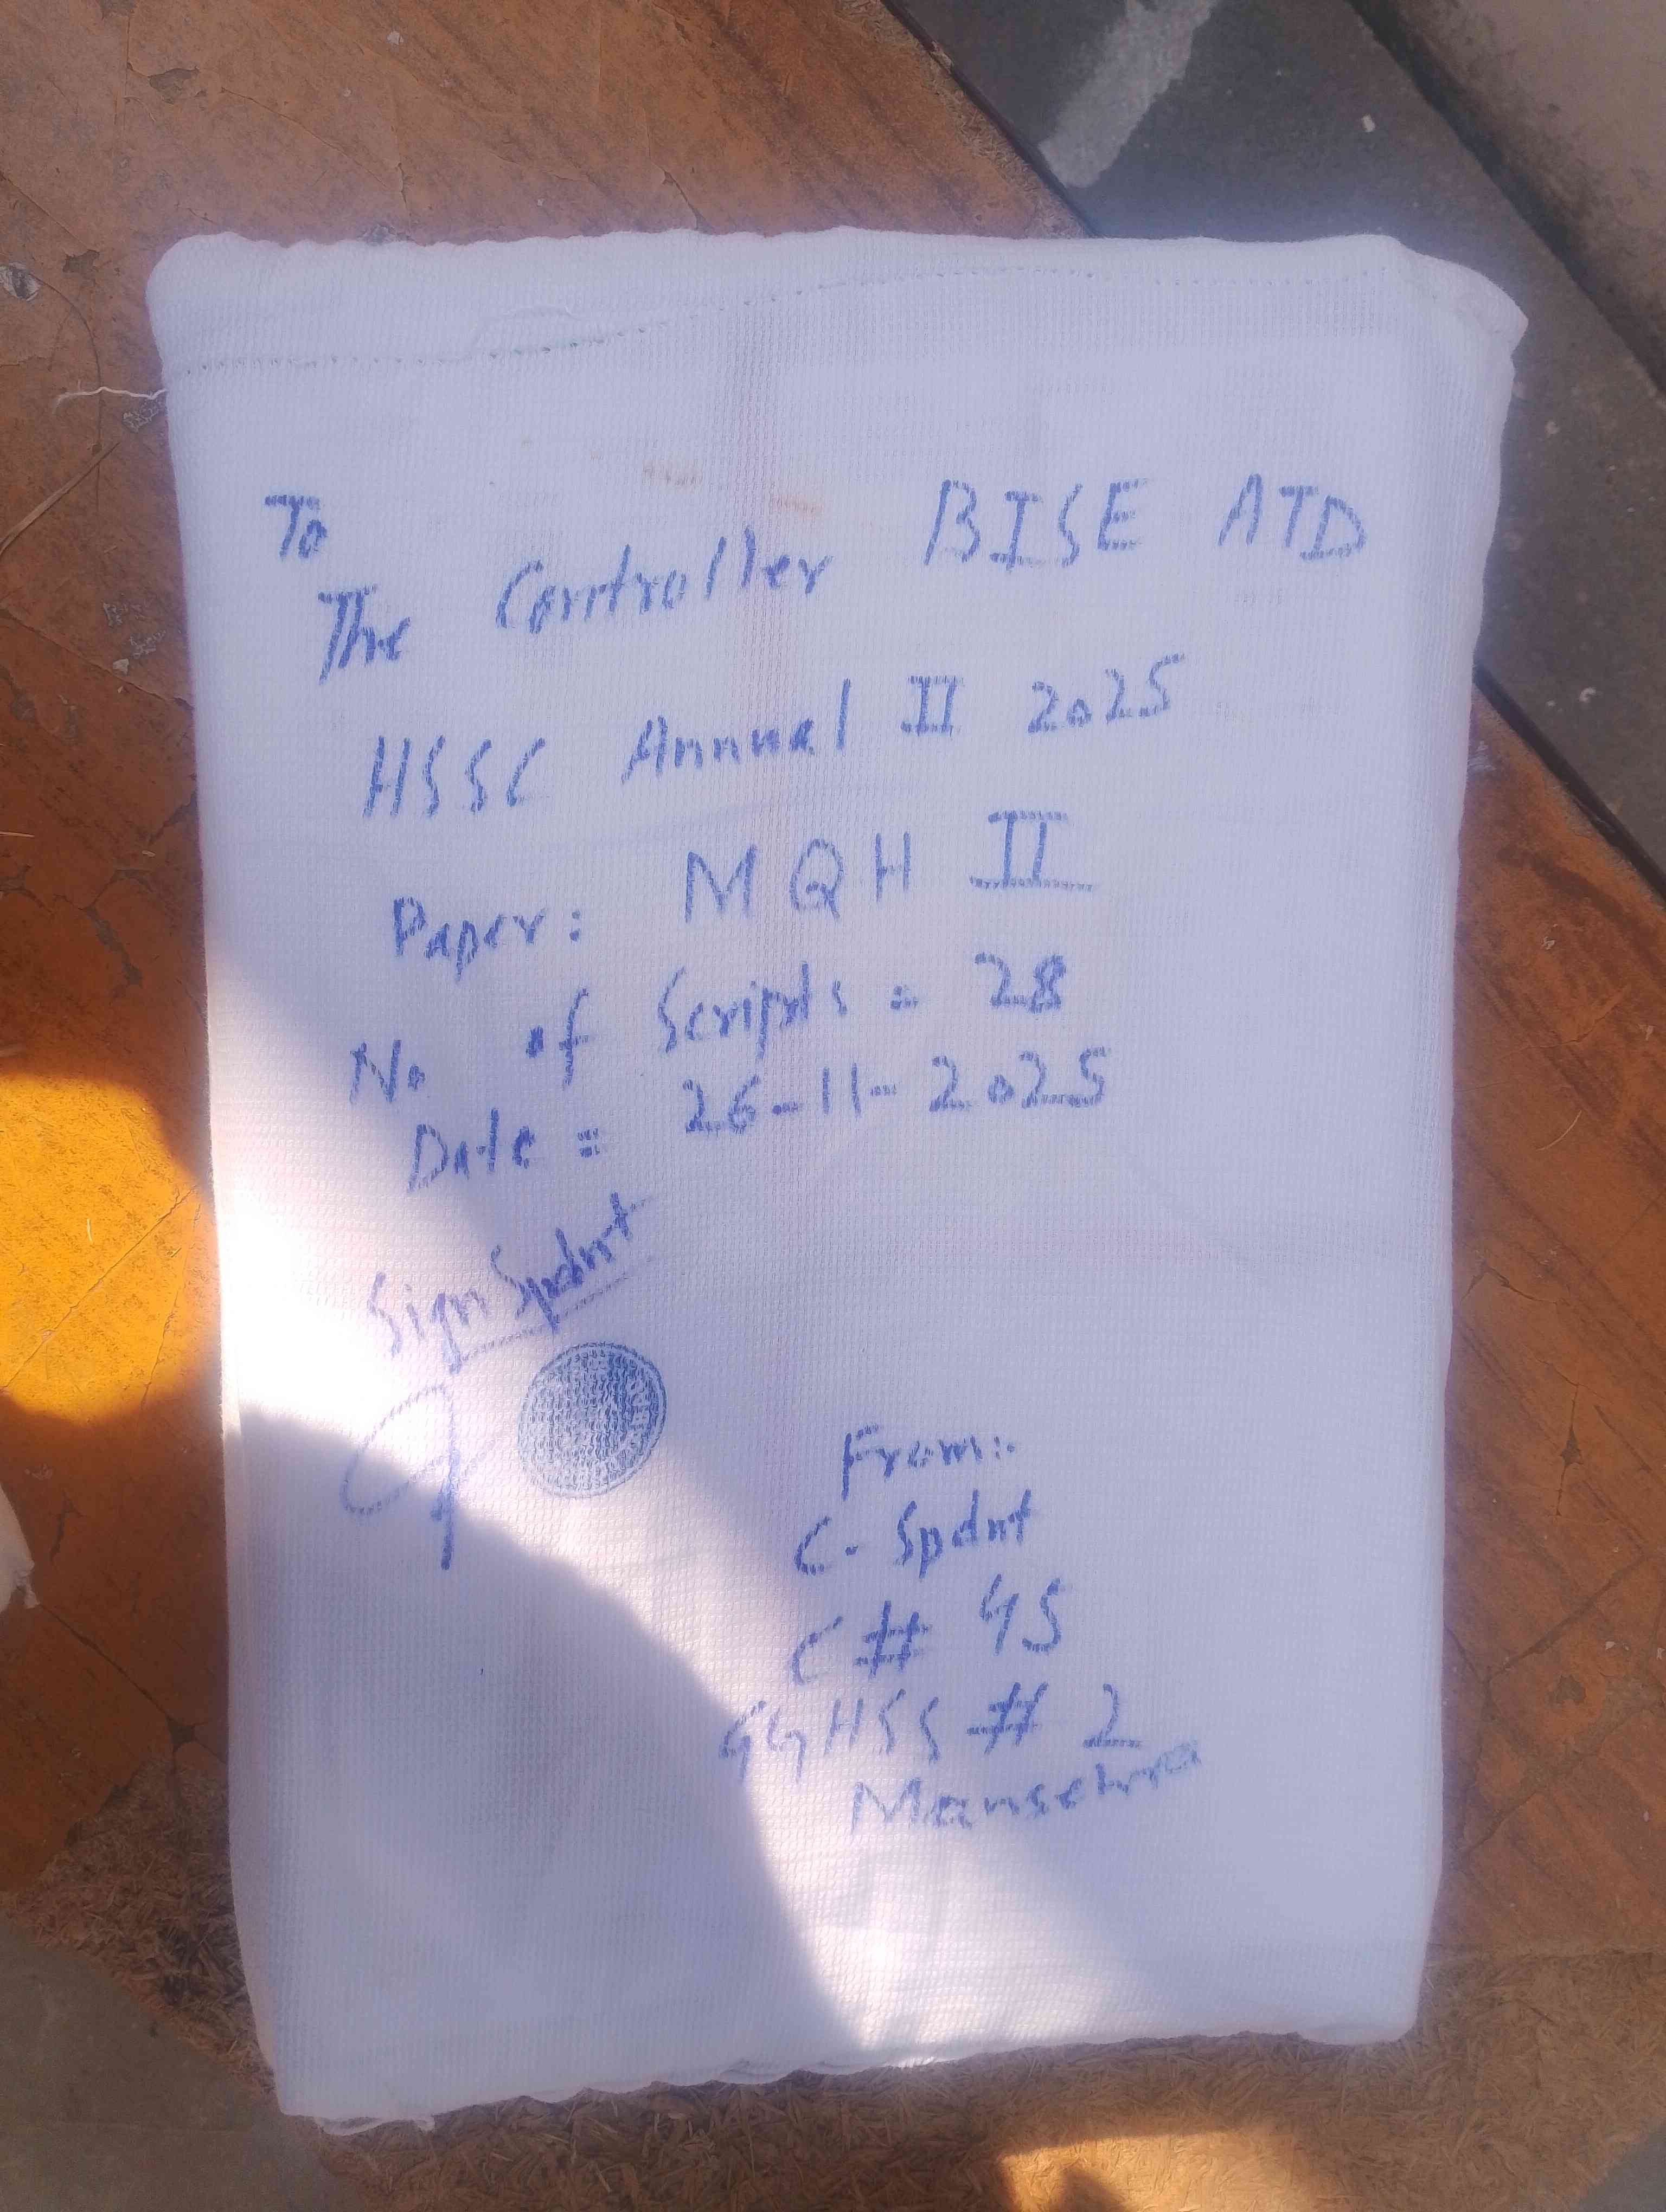 To
The Controller BISE ATD
HSSC Annual II 2025
Paper: MQH II
No of Scripts = 28
Date = 26-11-2025
Sign Spdnt
From:-
C. Spdnt
C # 45
GGHSS # 2
Mansehra